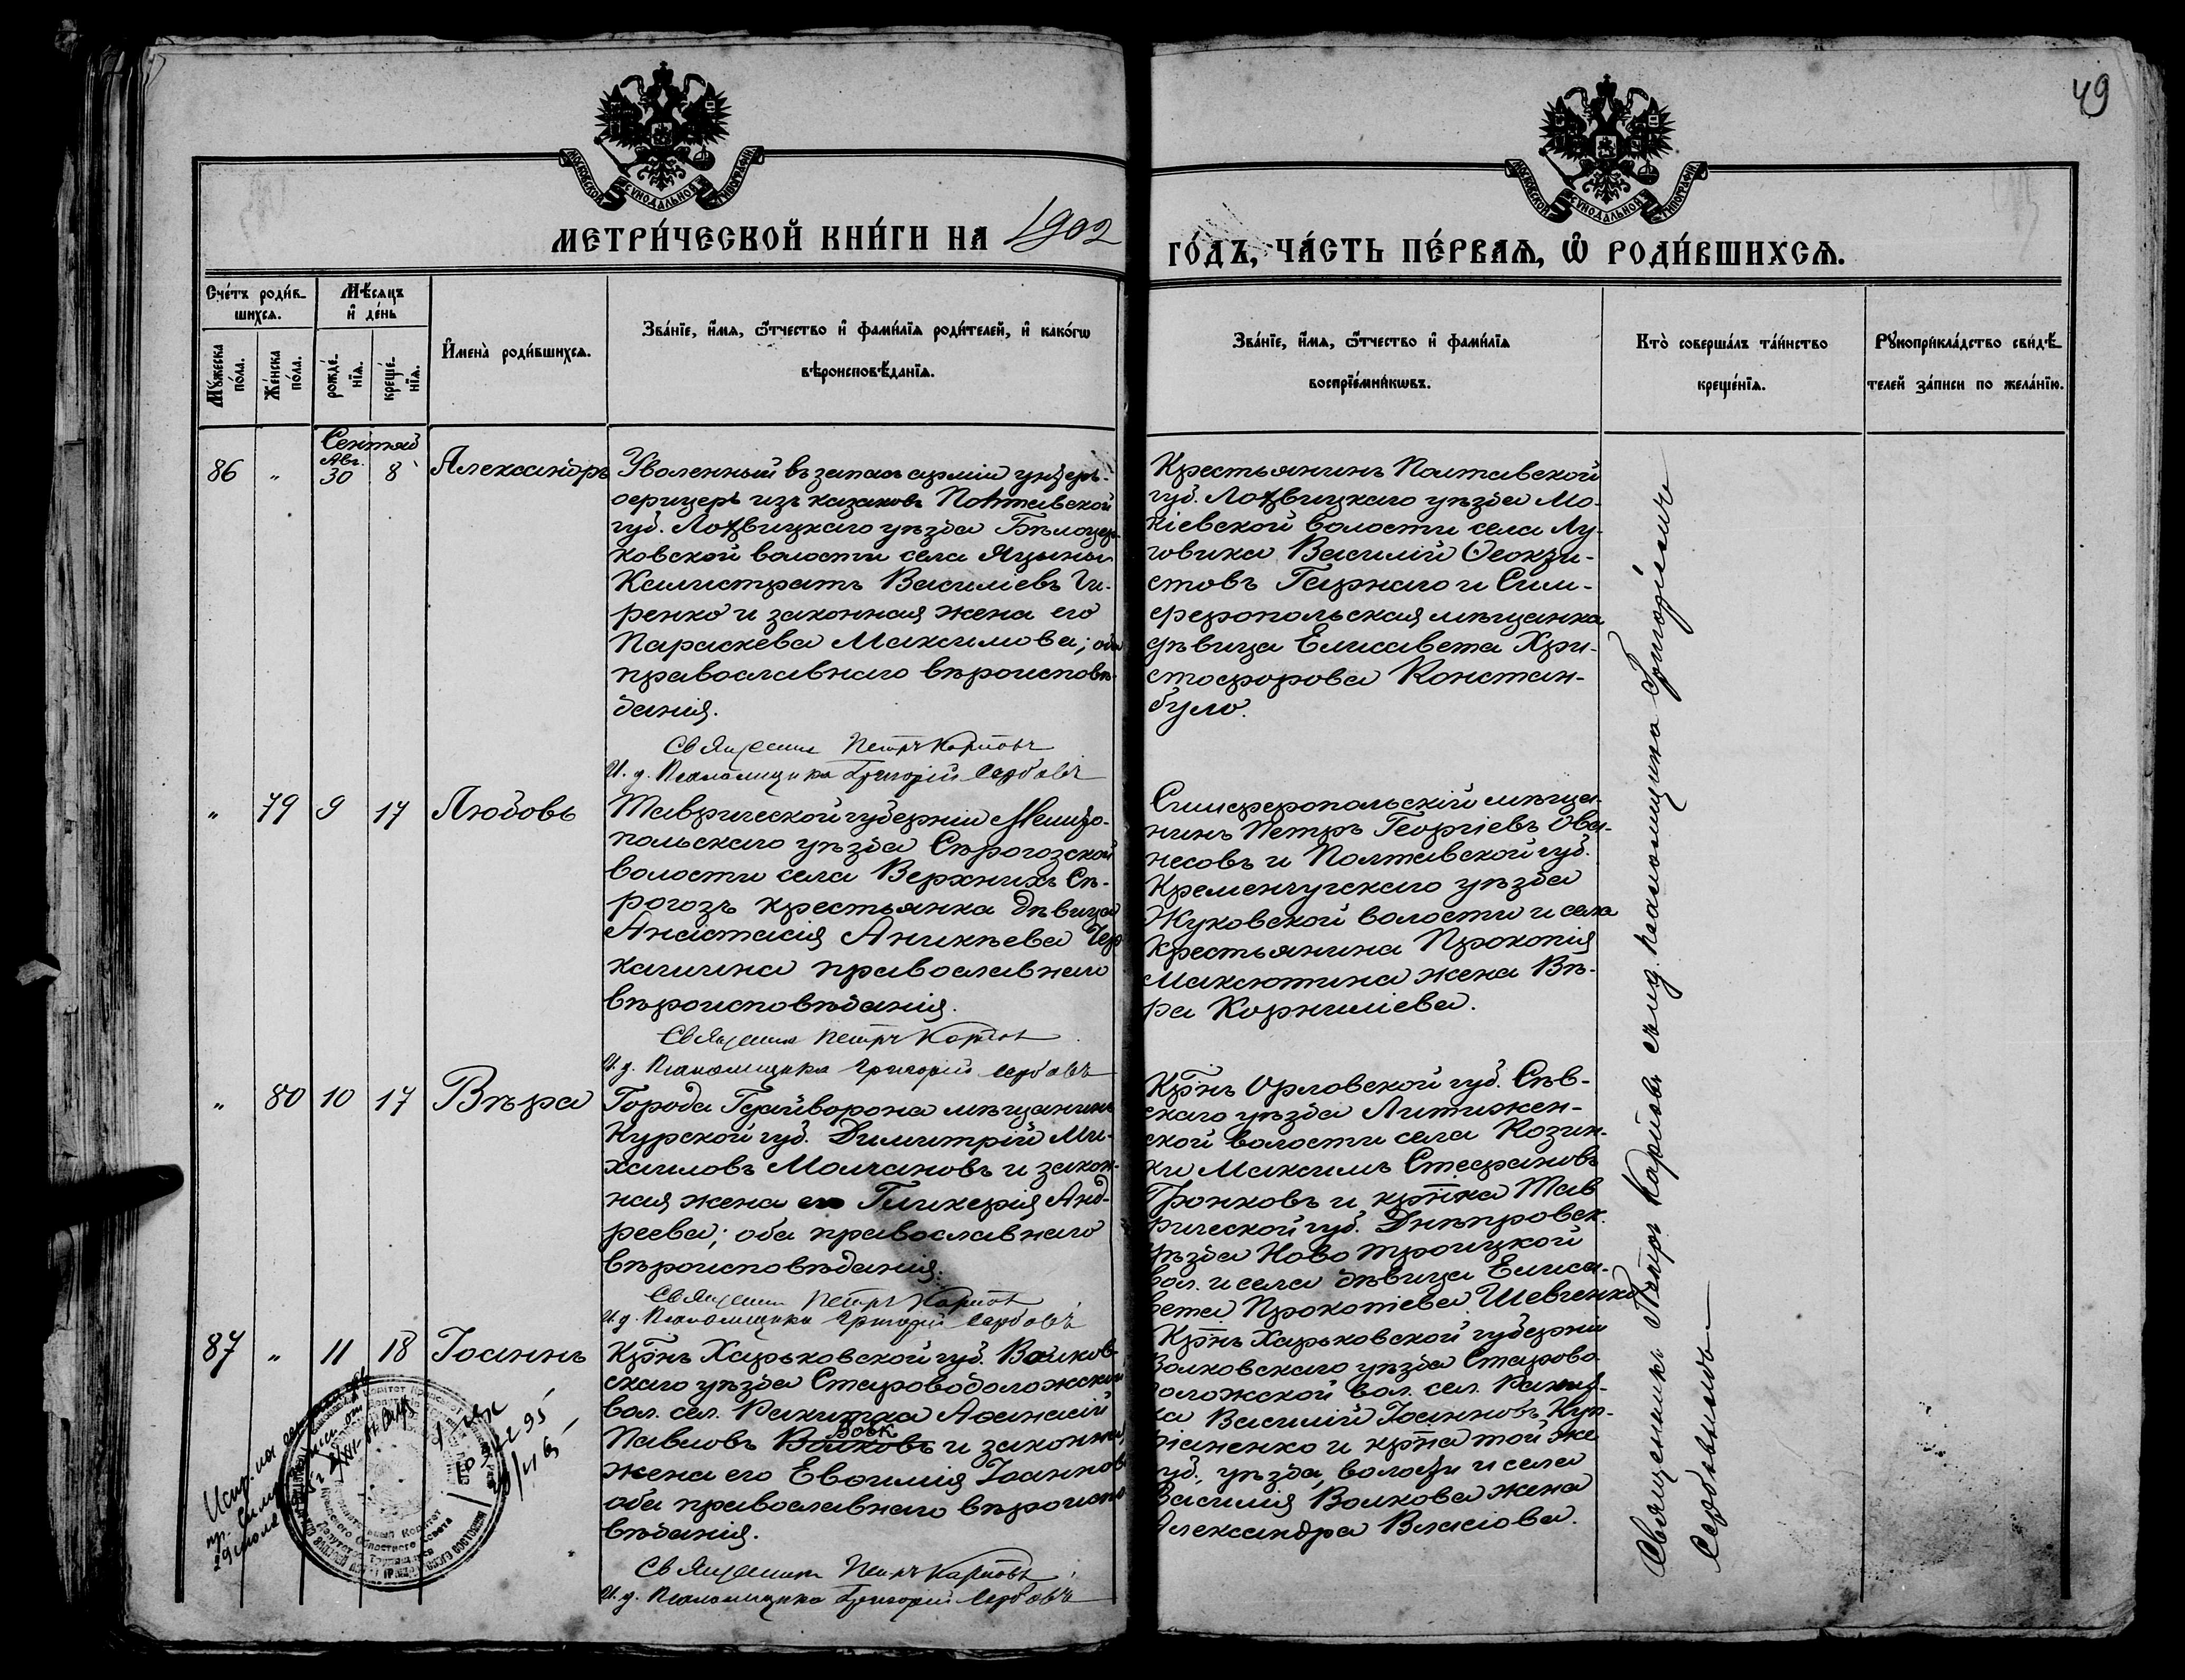 49
МОСКОВСКОЙ СѴНОДАЛЬНОЙ ТИПОГРАФІИ
МОСКОВСКОЙ СѴНОДАЛЬНОЙ ТИПОГРАФІИ
МЕТРИ́ЧЕСКОЙ КНИ́ГИ НА 1902
ГО́ДЪ, ЧА́СТЬ ПЕ́РВАѦ, Ѽ РОДИ́ВШИХСѦ.
Сче́тъ роди́в-
шихсѧ.
Мꙋ́жеска по́ла.
Же́нска по́ла.
Мѣ́сѧцъ
и҆ де́нь
рожде́-
нїѧ.
креще́-
нїѧ.
И҆мена̀ роди́вшихсѧ.
Зва́нїе, и҆́мѧ, ѻ҆́тчество и҆ фами́лїѧ роди́телей, и҆ како́гѡ
вѣроисповѣ́данїѧ.
Зва́нїе, и҆́мѧ, ѻ҆́тчество и҆ фами́лїѧ
воспрїе́мникѡвъ.
Кто̀ соверша́лъ та́инство
креще́нїѧ.
Рꙋкоприкла́дство свидѣ́-
телей за́писи по жела́нїю.
Сентяб
86 " Авг. 30 8 Александръ
Уволенный въ запасъ арміи унтеръ-
офицеръ изъ казаковъ Полтавской
губ. Лохвицкаго уѣзда Бѣлоцер-
ковской волости села Яцыны
Калистратъ Василіевъ Ги-
ренко и законная жена его
Параскева Максимова; оба
православнаго вѣроисповѣ-
данія.
Священник Петръ Карповъ
И. д. Псаломщика Григорій Сербовъ
Крестьянинъ Полтавской
губ. Лохвицкаго уѣзда Мо-
кіевской волости села Лу-
говика Василій Ѳеокти-
стовъ Гарнаго и Сим-
феропольская мѣщанка
дѣвица Елисавета Хри-
стофорова Констан-
дуло.
" 79 9 17 Любовь
Таврической губерніи Мелито-
польскаго уѣзда Сѣрогозской
волости села Верхнихъ Сѣ-
рогозъ крестьянка дѣвица
Анастасія Аникѣева Чер
кашина православнаго
вѣроисповѣданія.
Священник Петръ Карпов
И. д. Псаломщика Григорій Сербовъ
Симферопольскій мѣща-
нинъ Петръ Георгіевъ Ова-
несовъ и Полтавской губ.
Кременчугскаго уѣзда
Жуковской волости и села
Крестьянина Прокопія
Максютина жена Вѣ-
ра Корниліева.
" 80 10 17 Вѣра
Города Грайворона мѣщанинъ
Курской губ. Димитрій Ми-
хаиловъ Молчановъ и закон-
ная жена его Гликерія Анд-
реева; оба православнаго
вѣроисповѣданія.
Священник Петръ Карпов
И. д. Псаломщика Григорій Сербовъ
Кр̅нъ Орловской губ. Сѣв-
скаго уѣзда Литижен-
ской волости села Козин-
ки Максимъ Стефановъ
Гронковъ и кр̅нка Тав
рической губ. Днѣпровск.
уѣзда Ново Троицкой
вол. и села дѣвица Елиса-
вета Прокопіева Шевченко
87 " 11 18 Іоаннъ
Кр̅нъ Харьковской губ. Валков-
скаго уѣзда Староводолажской
вол. сел. Ракитна Аѳанасій
Вовк
Павловъ Волковъ и законная
жена его Евѳимія Іоаннов
оба православнаго вѣроиспо
вѣданія.
Священник Петръ Карповъ
И. д. Псаломщика Григорій Сербовъ
Кр̅нъ Харьковской губерніи
Валковскаго уѣзда Старово-
доложской вол. сел. Ракит-
на Василій Іоанновъ Куп-
ріаненко и кр̅на той же
губ., уѣзда, волости и села
Василія Волкова жена
Александра Власіова.
Священникъ Петръ Карповъ съ и. д. псаломщика Григоріемъ
Сербовымъ